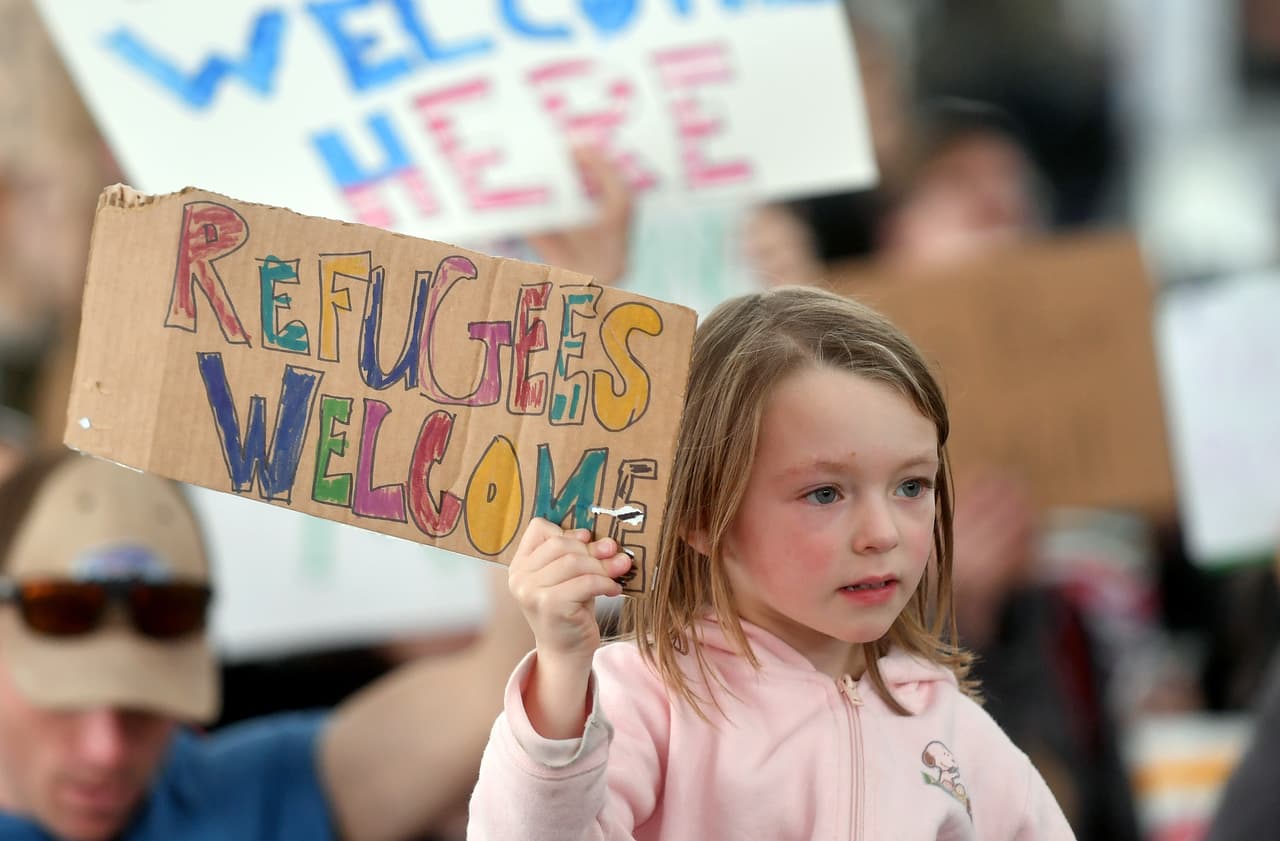 WELCOME
HERE
REFUGEES
WELCOME